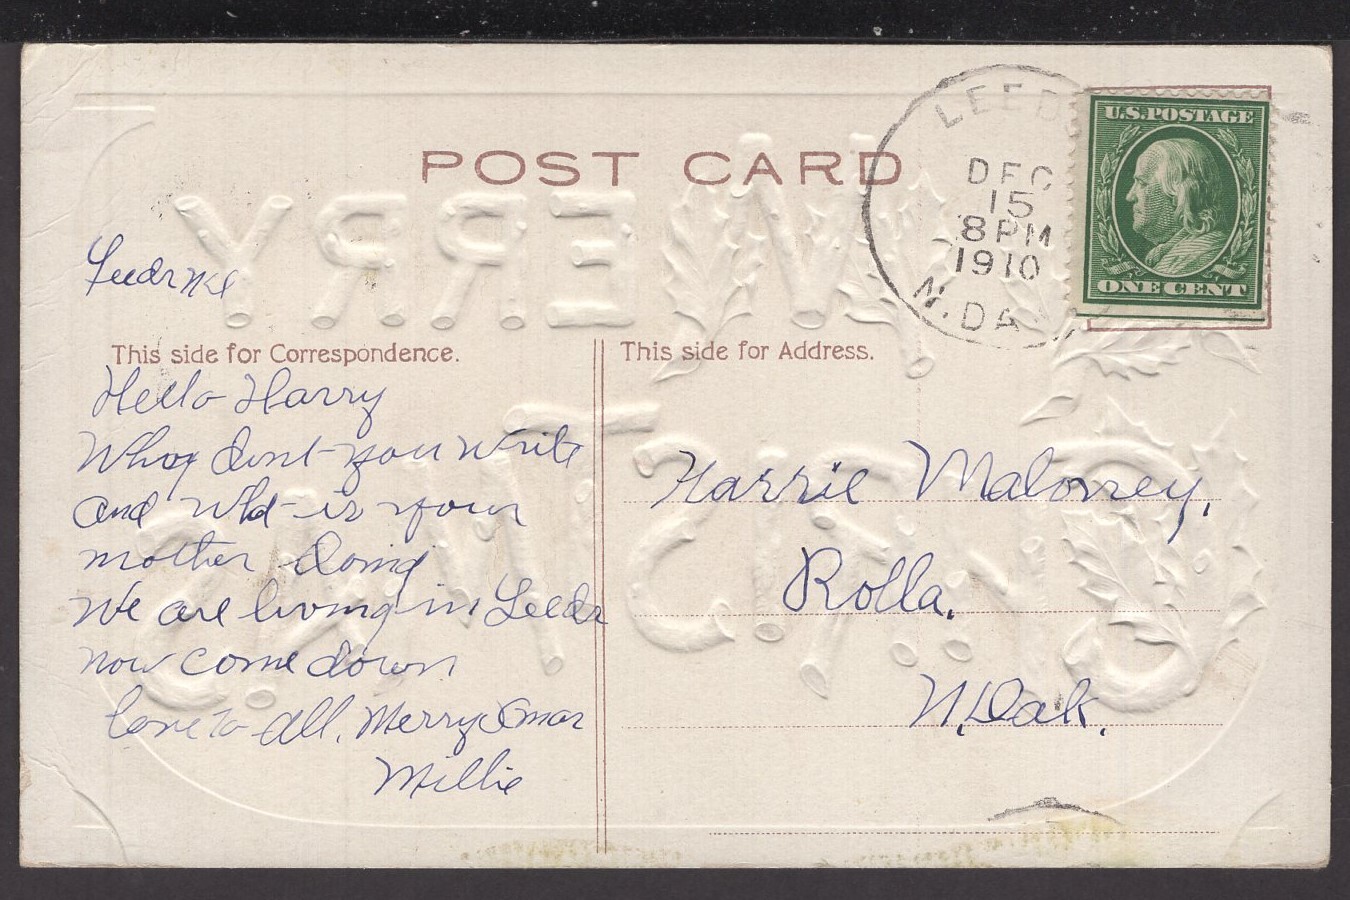 POST CARD
LEEDS
DEC
15
8 PM
1910
N. DAK
U.S. POSTAGE
ONE CENT
MERRY
CHRISTMAS
Leeds ND
This side for Correspondence.
This side for Address.
Hello Harry
Whay dont you write
and What is your
mother doing
We are living in Leeds
now come down
love to all. Merry Xmas
Millie
Harrie Maloney.
Rolla.
N. Dak.